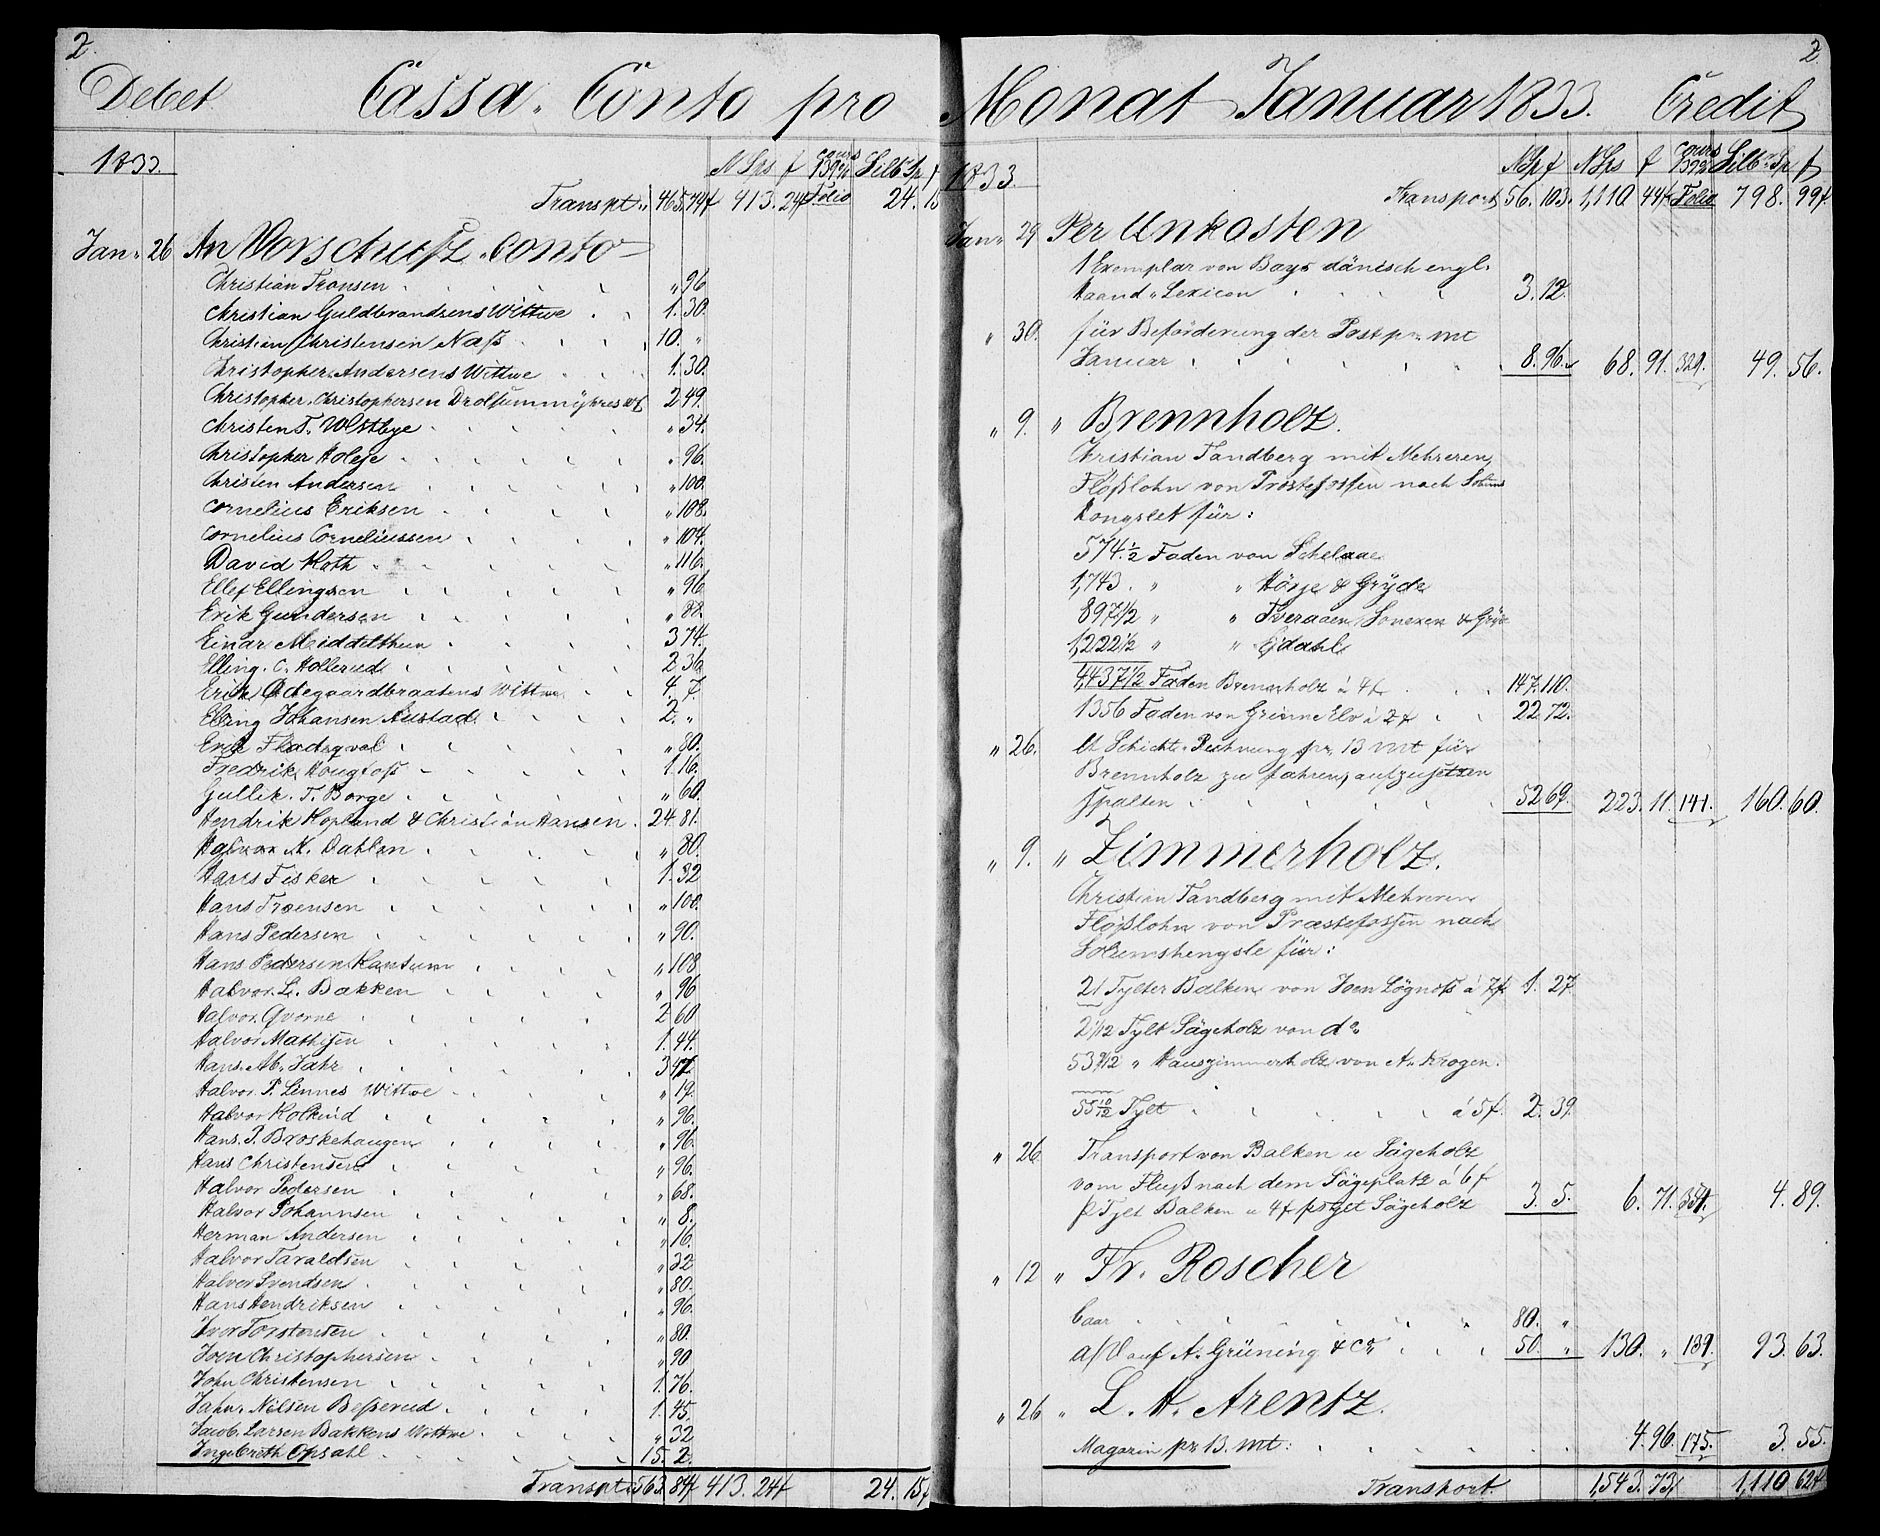 2.
Debet Cassa. Conto pro
1833.
N Sps f Cours 139% Silb Sp f
Transpt. 465. 74f 413. 24f Folio 24. 15
Jan. 26 An Vorschusz. Conto
Christian Fransen " 96
Christian Guldbrandsens Wittwe 1. 30.
Christian Christensen Nasz 10. "
Christopher Andersens Wittwe 1. 30.
Christopher Christophersen 2 49.
Christen T. Westbye " 34.
Christopher Holeje " 96.
Christen Andersen " 100.
Cornelius Eriksen " 108.
Cornelius Corneliussen " 104.
David Koth " 116.
Ellef Ellingsen " 96
Erik Gundersen " 88.
Einar Middelthun 3 74.
Elling. C. Hollerud 2 36
Erik Ødegaardbraatens Wittwe 4. 7.
Elling Johansen Austad 2. "
Erik Fladeqval " 80.
Fredrik Hougfosz 1. 16.
Gullik. T. Borge " 60.
Hendrik Hopland & Christian Hansen. 24. 81.
Halvor N. Dahlen " 80.
Hans Fisker 1. 32
Hans Troensen " 100.
Hans Pedersen " 90.
Hans Pedersen Hansum " 108
Halvor. L. Bakken " 96
Halvor. Qvorne 2 60
Halvor Mathisen 1. 44.
Hans. Ab. Jahr 3
Halvor. P. Lennes Wittwe " 19.
Halvor Kolkind " 96.
Hans. P. Broskehaugen " 96.
Hans Christensen " 96.
Halvor Pedersen " 68.
Halvor Johannsen " 8.
Herman Andersen " 16.
Halvor Taraldsen " 32
Halvor Svendsen " 80.
Hans Hendriksen " 96.
Iver Torstensen " 80.
Joen Christophersen " 90
John Christensen 1. 76.
Jahn Nilsen Besserud 1. 45.
Jacob. Larsen Bakkens Wittwe " 32
Ingebreth Opsahl 15. 2.
Transpt. 563. 84f 413. 24f 24. 15f
2
Monat Januar 1833. Credit
1833.
N Sp f N Sps f Cours 139% Silb Sp f
Transport 56. 103. 1,110 44f Folio 798. 99f.
Jan. 29 Per Unkosten
1 Exemplar von Bays dänisch engl.
Haand Lexicon 3. 12.
" 30. für Beförderung der Post pr mt
Januar 8. 96. 68. 91. 329. 49. 56.
" 9. " Brennholz.
Christian Tandberg mit Mehreren
Flöszlohn von Præstefossen nach
Kongslet für:
574 1/2 Faden von Schelaae
1,743. " " Hörje & Gryde
897 1/2 " " Tveraaen, Sonexen &
1,222 1/2 " " Ejdahl
4,437 1/2 Faden Brennholz à 4f 147. 110.
1356 Faden von Grünne Elv à 2f 22. 72.
" 26. lt Schicht. Rechnung pr. 13 mt für
Brennholz zu fahren, aufzusetzen
spalten 52 69. 223. 11. 141. 160. 60.
" 9. " Zimmerholz.
Christian Tandberg mit Mehreren
Flöszlohn von Præstefossen nach
für:
21 Tylter Balken von Joen Lögnosz à 7f. 1. 27.
2 1/12 Tylt Sägeholz von do
53 9/12 " Hauszimmerholz von A. Krogen.
55 10/12 Tylt à 5f. 2. 39.
" 26 Transport von Balken u Sägeholz
vom Flusz nach dem Sägeplatz à 6f
pr Tylt Balken u 4f pr Tylt Sägeholz 3. 5. 6. 71. 351. 4. 89.
" 12 " Fr. Roscher
Caar 80. "
a/V auf A. Grüning & Co 50. " 130. " 139. 93. 63.
" 26 " L. H. Arentz.
Magazin pr 13. mt: 4. 96. 175. 3. 55.
Transport. 1,543. 73f 1,110 62f